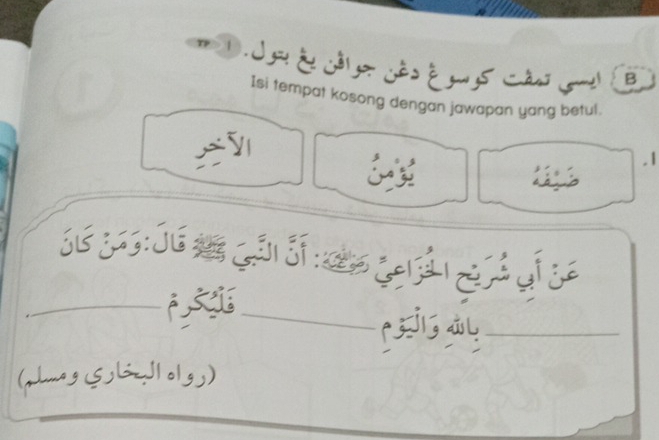 B ايسي تمڤت كوسوڠ دڠن جواڤن يڠ بتول. TP 1
Isi tempat kosong dengan jawapan yang betul.
1. ضَيْفَهُ يُؤْمِنُ الآخِرِ
عَنْ أَبِي شُرَيْحٍ الْخُزَاعِيِّ رضي الله عنه: أَنَّ النَّبِيَّ ﷺ قَالَ: وَمَنْ كَانَ
_______ بِاللهِ وَالْيَوْمِ _______ فَلْيُكْرِمْ _______.
(رواه البخاري ومسلم)